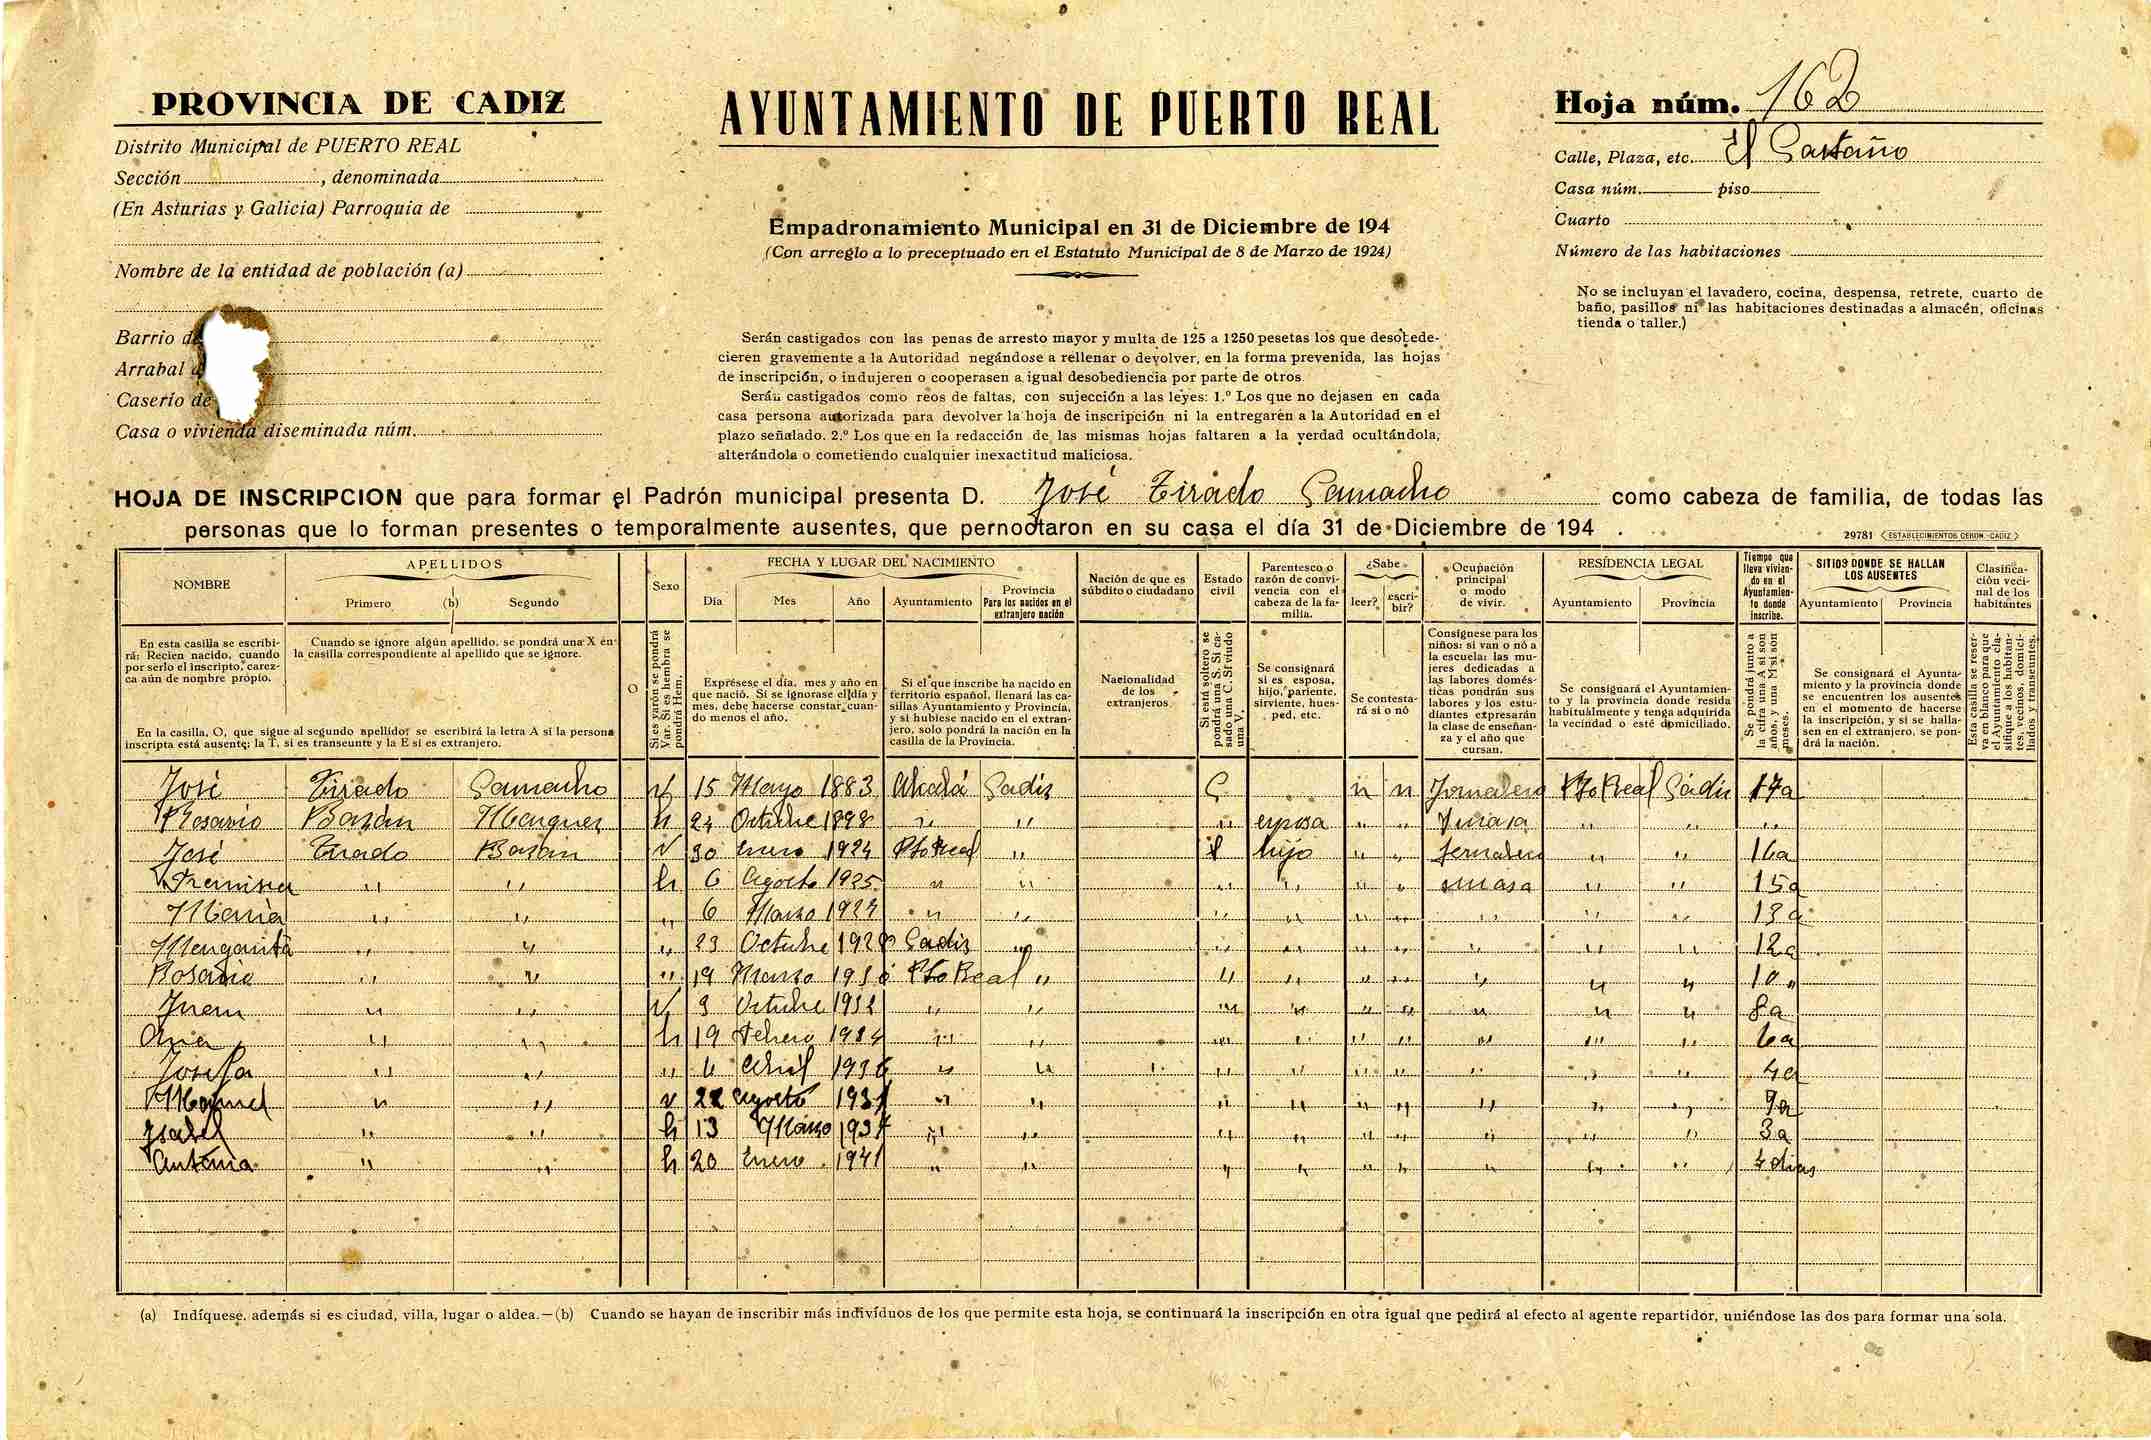 PROVINCIA DE CADIZ
Distrito Municipal de PUERTO REAL
Sección , denominada
(En Asturias y Galicia) Parroquia de
Nombre de la entidad de población (a)
Barrio d
Arrabal
Caserío de
Casa o vivienda diseminada núm.
AYUNTAMIENTO DE PUERTO REAL
Empadronamiento Municipal en 31 de Diciembre de 194
(Con arreglo a lo preceptuado en el Estatuto Municipal de 8 de Marzo de 1924)
Serán castigados con las penas de arresto mayor y multa de 125 a 1250 pesetas los que desobede-
cieren gravemente a la Autoridad negándose a rellenar o devolver, en la forma prevenida, las hojas
de inscripción, o indujeren o cooperasen a igual desobediencia por parte de otros.
Serán castigados como reos de faltas, con sujección a las leyes: 1.º Los que no dejasen en cada
casa persona autorizada para devolver la hoja de inscripción ni la entregaren a la Autoridad en el
plazo señalado. 2.º Los que en la redacción de las mismas hojas faltaren a la verdad ocultándola,
alterándola o cometiendo cualquier inexactitud maliciosa.
Hoja núm. 162
Calle, Plaza, etc. El
Casa núm. piso
Cuarto
Número de las habitaciones
No se incluyan el lavadero, cocina, despensa, retrete, cuarto de
baño, pasillos ni las habitaciones destinadas a almacén, oficinas
tienda o taller.)
HOJA DE INSCRIPCION que para formar el Padrón municipal presenta D. José Tirado Camacho como cabeza de familia, de todas las
personas que lo forman presentes o temporalmente ausentes, que pernoctaron en su casa el día 31 de Diciembre de 194 .
29781 ESTABLECIMIENTOS CERON.-CADIZ
NOMBRE
APELLIDOS
Primero (b) Segundo
Sexo
FECHA Y LUGAR DEL NACIMIENTO
Día Mes Año Ayuntamiento
Provincia
Para los nacidos en el
extranjero nación
Nación de que es
súbdito o ciudadano
Estado
civil
Parentesco o
razón de convi-
vencia con el
cabeza de la fa-
milia.
¿Sabe
leer? escri-
bir?
Ocupación
principal
o modo
de vivir.
RESIDENCIA LEGAL
Ayuntamiento Provincia
Tiempo que
lleva vivien-
do en el
Ayuntamien-
to donde
inscribe.
SITIOS DONDE SE HALLAN
LOS AUSENTES
Ayuntamiento Provincia
Clasifica-
ción veci-
nal de los
habitantes
En esta casilla se escribi-
rá: Recien nacido, cuando
por serlo el inscripto, carez-
ca aún de nombre propio.
Cuando se ignore algún apellido, se pondrá una X en
la casilla correspondiente al apellido que se ignore.
En la casilla, O, que sigue al segundo apellido se escribirá la letra A si la persona
inscripta está ausente; la T, si es transeunte y la E si es extranjero.
O
Si es varón se pondrá
Var. Si es hembra se
pondrá Hem.
Exprésese el día, mes y año en
que nació. Si se ignorase el día y
mes, debe hacerse constar cuan-
do menos el año.
Si el que inscribe ha nacido en
territorio español, llenará las ca-
sillas Ayuntamiento y Provincia,
y si hubiese nacido en el extran-
jero, solo pondrá la nación en la
casilla de la Provincia.
Nacionalidad
de los
extranjeros
Si está soltero se
pondrá una S. Si ca-
sado una C. Si viudo
una V.
Se consignará
si es esposa,
hijo, pariente,
sirviente, hues-
ped, etc.
Se contesta-
rá si o nó
Consígnese para los
niños: si van o nó a
la escuela; las mu-
jeres dedicadas a
las labores domés-
ticas pondrán sus
labores y los estu-
diantes expresarán
la clase de enseñan-
za y el año que
cursan.
Se consignará el Ayuntamien-
to y la provincia donde resida
habitualmente y tenga adquirida
la vecindad o esté domiciliado.
Se pondrá junto a
la cifra una A si son
años, y una M si son
meses.
Se consignará el Ayunta-
miento y la provincia donde
se encuentren los ausentes
en el momento de hacerse
la inscripción, y si se halla-
sen en el extranjero, se pon-
drá la nación.
Esta casilla se reser-
va en blanco para que
el Ayuntamiento cla-
sifique a los habitan-
tes, vecinos, domici-
liados y transeuntes.
José Tirado Camacho V 15 Mayo 1883 Alcalá Cadiz C n n Jornalero Pto Real Cádiz 17a
Rosario Bazán h 24 Octubre 1898 " " " esposa " " " " "
José Tirado Bazán V 30 Enero 1924 Pto Real " S hijo " " Jornalero " " 16a
" " h 6 Agosto 1925 " " " " " " " " 15a
María " " " 6 Marzo " " " " " " " " " 13a
" " " 23 Octubre 1928 Cadiz " " " " " " " " 12a
Rosario " " " 19 Marzo 1930 Pto Real " " " " " " " " 10 "
Juan " " V 9 Octubre " " " " " " " " " 8a
Ana " " h 19 Febrero 1934 " " " " " " " " " 6a
Josefa " " " 6 Abril 1936 " " " " " " " " " 4a
Manuel " " v 22 Agosto 1931 " " " " " " " " " 9a
Isabel " " h 13 Marzo 1937 " " " " " " " " " 3a
Antonia " " h 20 Enero 1941 " " " " " " " " " 4 dias
(a) Indíquese, además si es ciudad, villa, lugar o aldea.—(b) Cuando se hayan de inscribir más indivíduos de los que permite esta hoja, se continuará la inscripción en otra igual que pedirá al efecto al agente repartidor, uniéndose las dos para formar una sola.